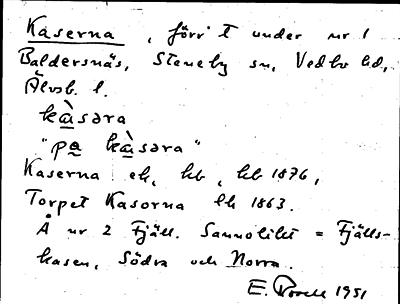 Kaserna, förr t under nr 1
Baldersnäs, Steneby sn, Vedbo hd,
Älvsb. l.
kàsəra
"pa kàsəra"
Kaserna ek, hb, hb 1876,
Torpet Kasorna lk 1863.
Å nr 2 Fjäll. Sannolikt = Fjälls-
kasen, Södra och Norra.
E. 1951